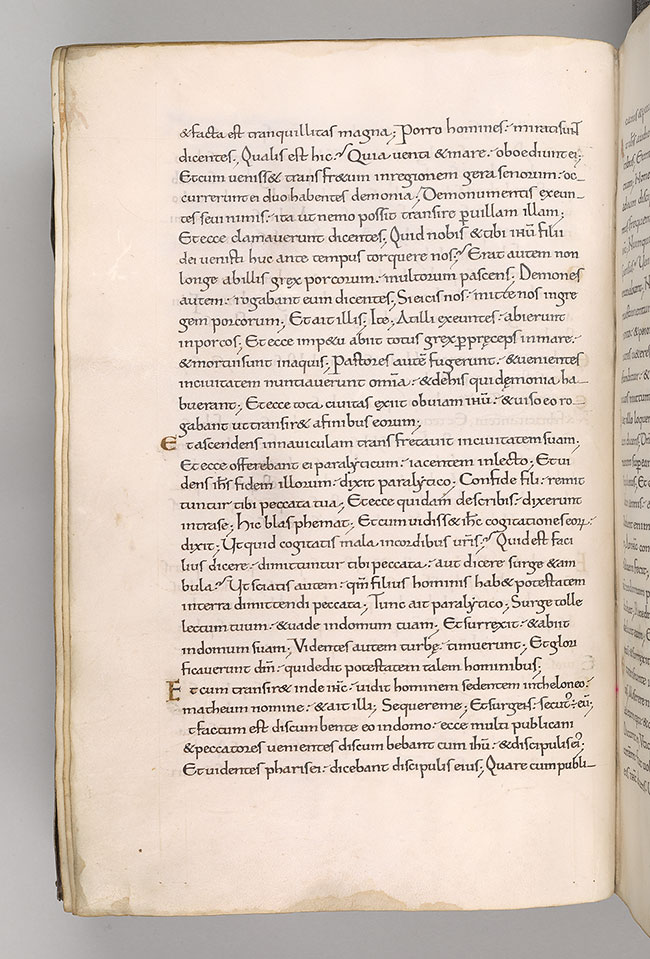 &facta est tranquillitas magna; Porro homines. miratisunt
dicentes; Qualis est hic? Quia venti &mare. oboediunt ei;
Etcum veniss& transfr&um inregionem gerasenorum. oc-
currerunt ei duo habentes demonia; Demonumentis exeun-
tes sevi nimis. ita ut nemo possit transire pvillam illam;
Et ecce clamaverunt dicentes; Quid nobis &tibi ihū filii
dei venisti huc ante tempus torquere nos? Erat autem non
longe abillis grex porcorum. multorum pascens; Demones
autem. rogabant eum dicentes; Sieicis nos. mitte nos ingre
gem porcorum; Etait illis; Ite; Atilli exeuntes. abierunt
inporcos; Et ecce imp&u abiit totus grex pprȩceps inmare.
&mortuisunt inaquis; Pastores autē fugerunt. &venientes
incivitatem nuntiaverunt omīa. &dehis qui dȩmonia ha-
buerant; Etecce tota civitas exiit obviam ihū. &viso eo ro-
gabant ut transir& afinibus eorum;
Et ascendens innaviculam transfretavit incivitatem suam;
Et ecce offerebant ei paralyticum. iacentem inlecto; Et vi
dens ihs fidem illorum. dixit paralytico; Confide fili. remit
tuntur tibi peccata tua; Etecce quidam describis. dixerunt
intrase; Hic blasphemat; Et cum vidiss& ihc cogitationes eorꝝ.
dixit; Ut quid cogitatis mala incordibus vris? Quid est faci
lius dicere. dimittuntur tibi peccata. aut dicere surge &am
bula? Ut sciatis autem. qm filius hominis hab& potestatem
interra dimittendi peccata; Tunc ait paralytico; Surge tolle
lectum tuum. &vade indomum tuam; Et surrexit. &abiit
indomum suam; Videntes autem turbȩ. timuerunt; Et glori
ficaverunt dm. quidedit potestatem talem hominibus;
Et cum transir& inde ihc. vidit hominem sedentem intheloneo.
matheum nomine. &ait illi; Sequereme; Et surgens. secut' ē eū;
t factum est discumbente eo indomo. ecce multi publicani
&peccatores venientes discumbebant cum ihū. &discipulis ei';
Et videntes pharisei. dicebant discipulis eius; Quare cum publi-